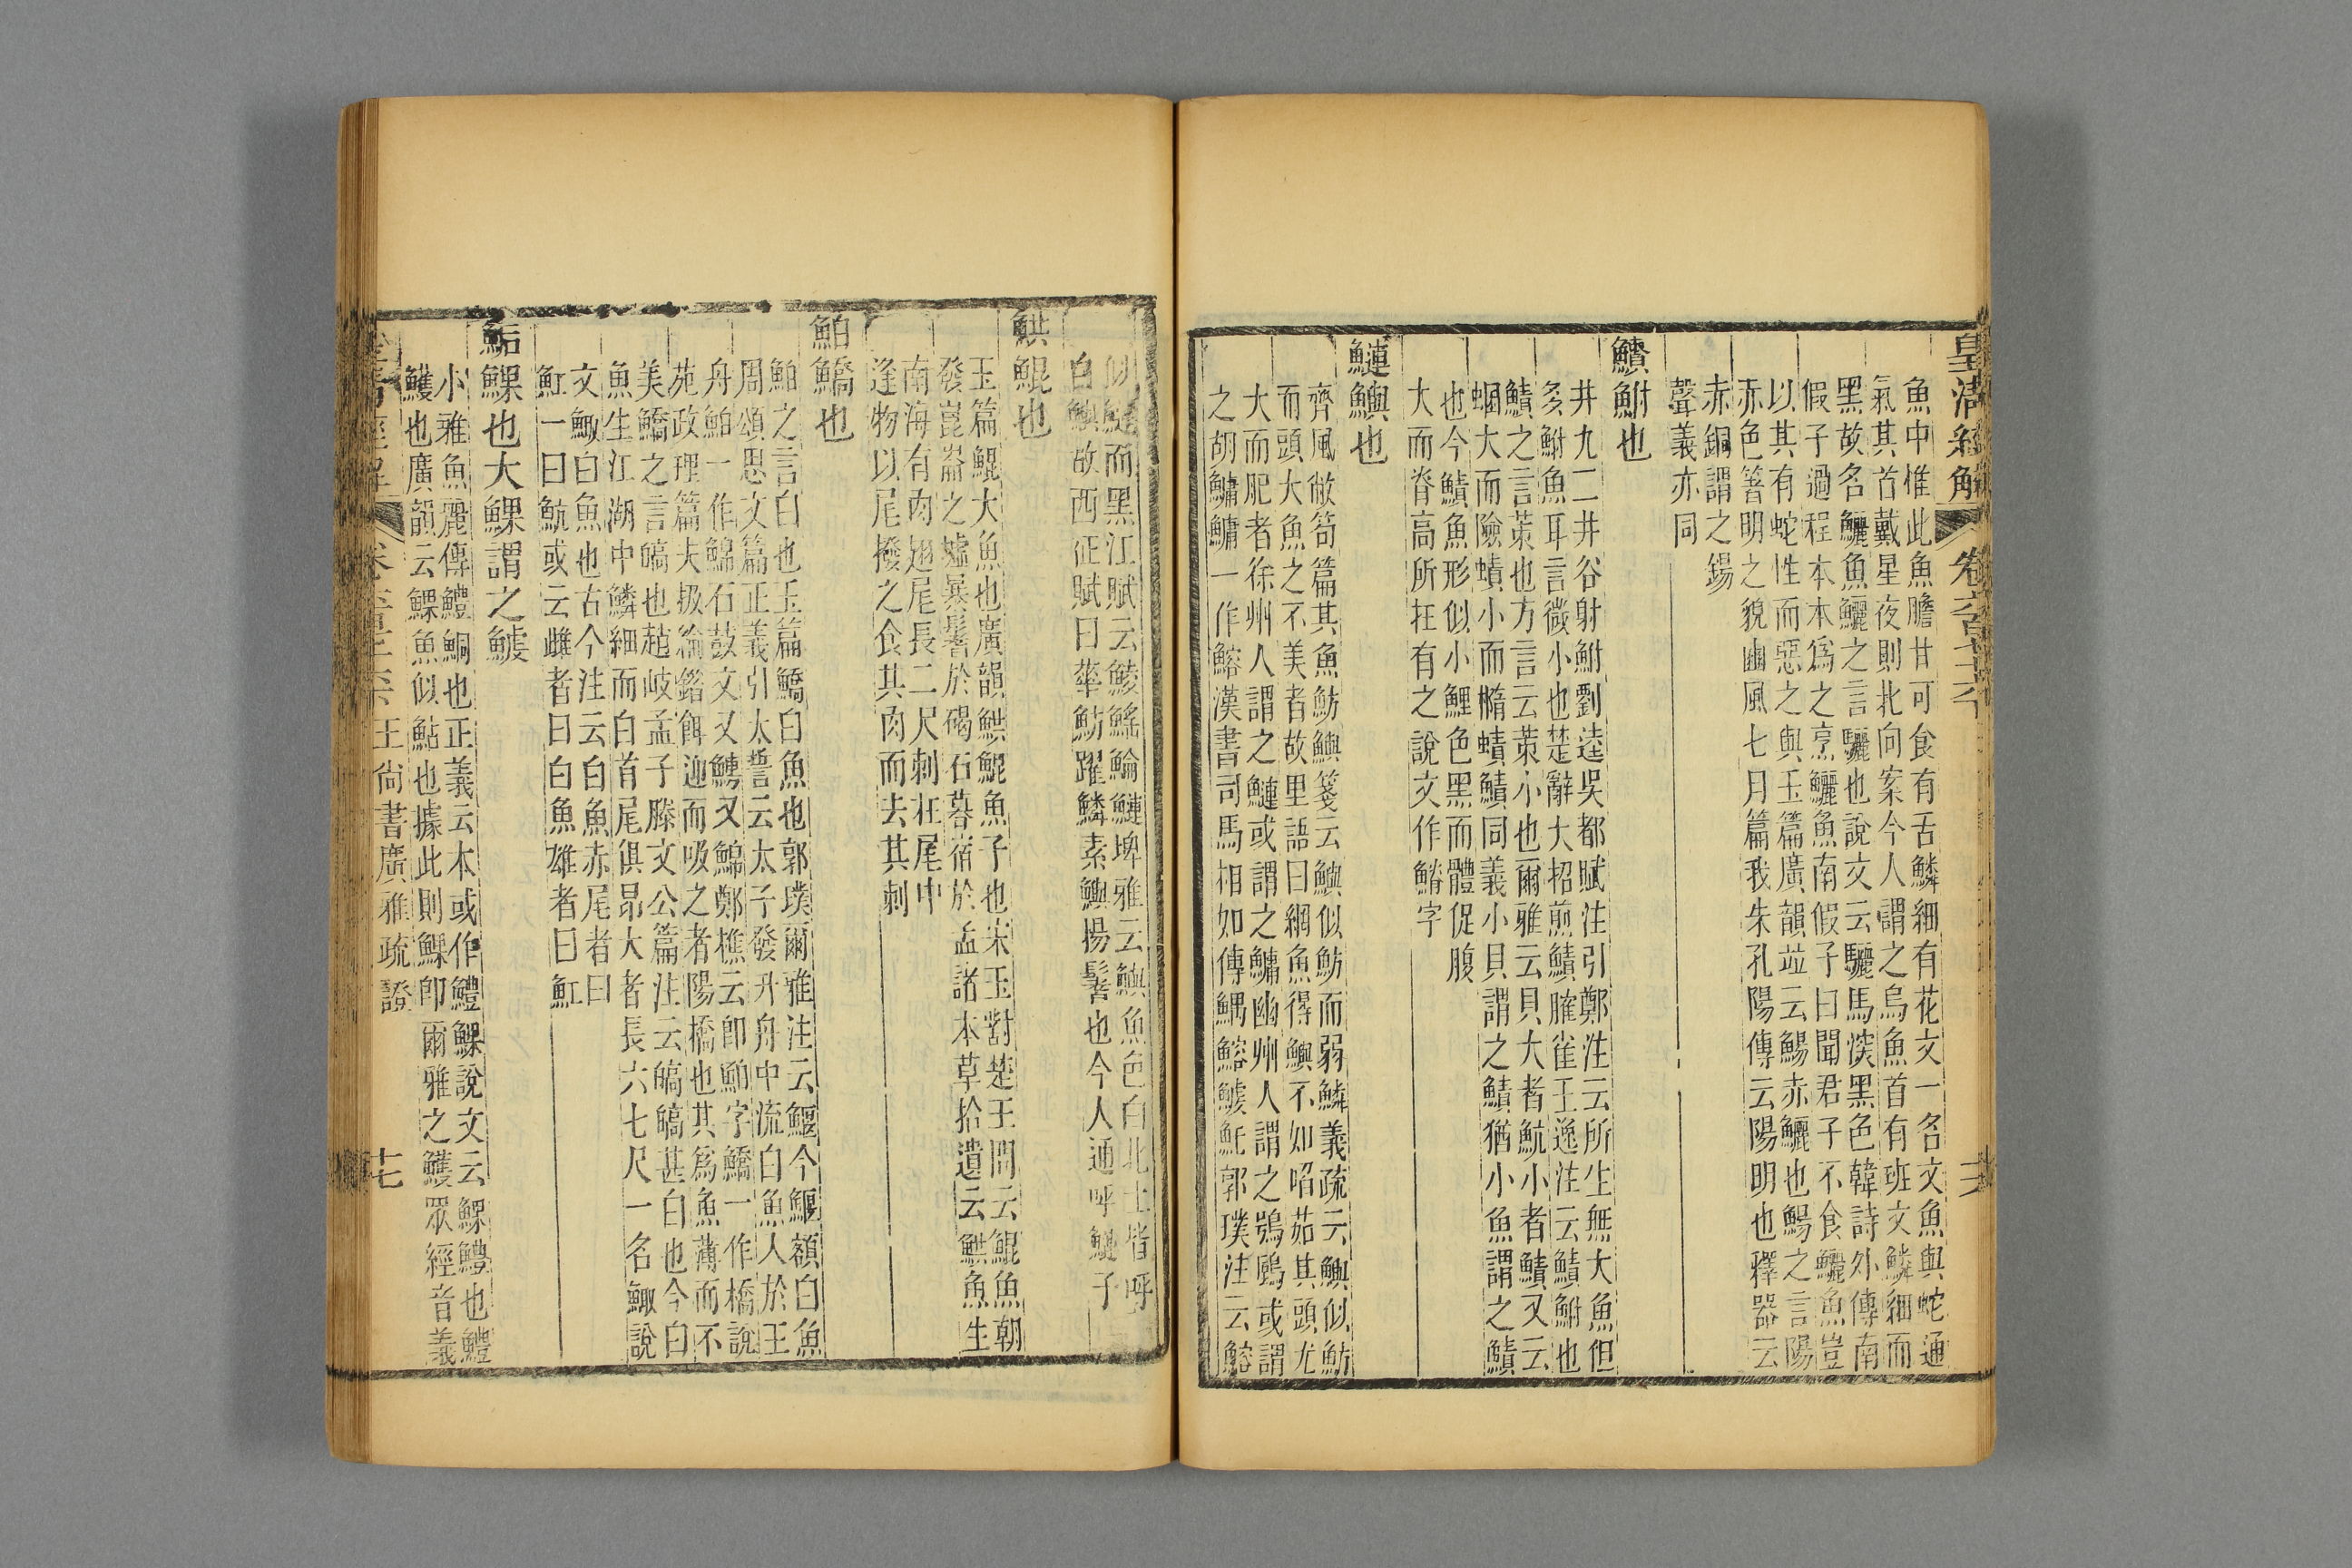 皇清經解
魚中惟此魚膽甘可食有舌鱗細有花文一名文魚與蛇通
氣其首戴星夜則北向案今人謂之烏魚首有班文鱗細而
黑故名鱺魚鱺之言驪也說文云驪馬深黑色韓詩外傳南
假子過程本本為之烹鱺魚南假子曰聞君子不食鱺魚豈
以其有蛇性而惡之與玉篇廣韻竝云鰑赤鱺也鰑之言陽
赤色箸明之貌豳風七月篇我朱孔陽傳云陽明也釋器云
赤銅謂之錫
聲義亦同
鰿鮒也
井九二井谷射鮒劉逵吳都賦注引鄭注云所生無大魚但
多鮒魚耳言微小也楚辭大招煎鰿臛雀王逸注云鰿鮒也
鰿之言茦也方言云茦小也爾雅云貝大者魧小者鰿又云
蜠大而險蟦小而橢蟦鰿同義小貝謂之鰿猶小魚謂之鰿
也今鰿魚形似小鯉色黑而體促腹
大而脊高所在有之說文作䲙字
鰱鱮也
齊風敝笱篇其魚魴鱮箋云鱮似魴而弱鱗義疏云鱮似魴
而頭大魚之不美者故里語曰網魚得鱮不如啗茹其頭尤
大而肥者徐州人謂之鰱或謂之鱅幽州人謂之鴞鷉或謂
之胡鱅鱅一作鰫漢書司馬相如傳鰅鰫鯱魠郭璞注云鰫
似鰱而黑江賦云鯪鰩鯩鰱埤雅云鱮魚色白北土皆呼
白鱮故西征賦曰華魴躍鱗素鱮揚鬐也今人通呼鰱子
䱋鯤也
玉篇鯤大魚也廣韻䱋鯤魚子也宋玉對楚王問云鯤魚朝
發崑崙之墟暴鬐於碣石暮宿於孟諸本草拾遺云䱋魚生
南海有肉翅尾長二尺刺在尾中
逢物以尾撥之食其肉而去其刺
鮊鱎也
鮊之言白也玉篇鱎白魚也郭璞爾雅注云鰋今鰋額白魚
周頌思文篇正義引太誓云太子發升舟中流白魚人於王
舟鮊一作鯿石鼓文又鱄又鯿鄭樵云卽鮊字鱎一作橋說
苑政理篇夫扱綸錯餌迎而吸之者陽橋也其為魚薄而不
美鱎之言皜也趙岐孟子滕文公篇注云皜皜甚白也今白
魚生江湖中鱗細而白首尾俱昂大者長六七尺一名鮿說
文鮿白魚也古今注云白魚赤尾者曰
魟一曰魧或云雌者曰白魚雄者曰魟
鮜鯶也大鯶謂之鯱
小雅魚麗傳鱧鯛也正義云本或作鱧鯶說文云鯶鱧也鱧
鱯也廣韻云鯶魚似鮎也據此則鯶卽爾雅之鱯眾經音義
王尚書廣雅疏證
十七